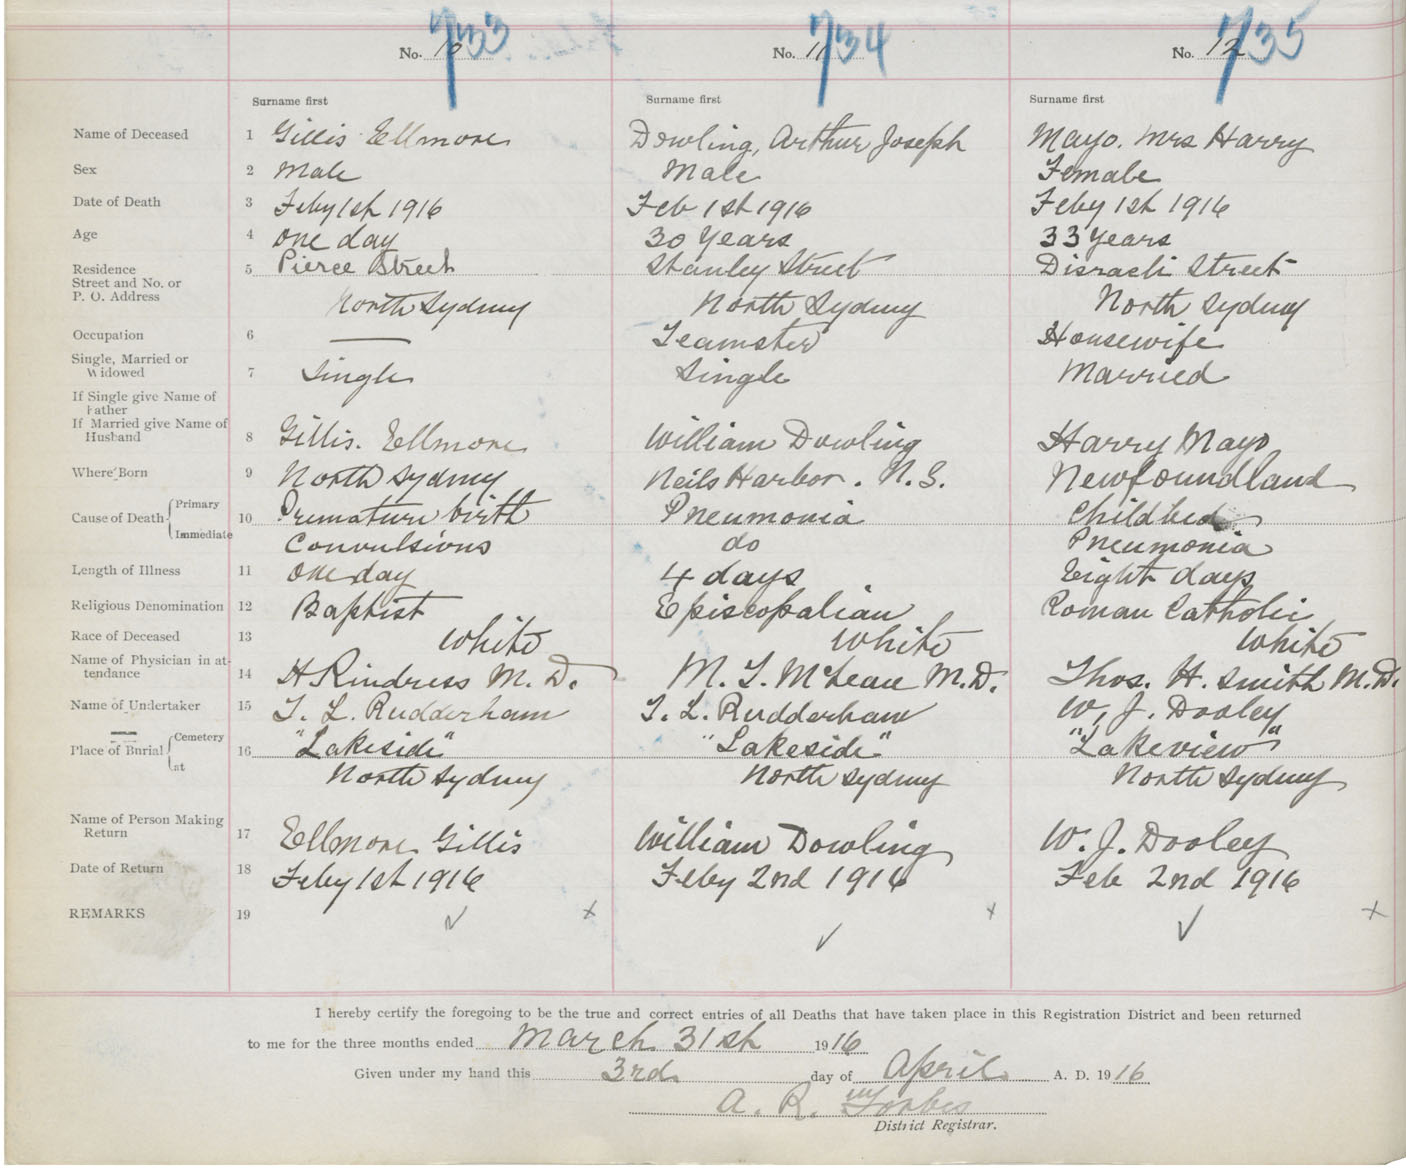 733 734 735
No. 10 No. 11 No. 12
Surname first Surname first Surname first
Name of Deceased 1 Gillis Ellmore Dowling, Arthur Joseph Mayo. Mrs Harry
Sex 2 Male Male Female
Date of Death 3 Feby 1st 1916 Feb 1st 1916 Feby 1st 1916
Age 4 one day 30 Years 33 Years
Residence 5 Pierce Street Stanley Street Disraeli Street
Street and No. or
P. O. Address North Sydney North Sydney North Sydney
Occupation 6 — Teamster Housewife
Single, Married or
Widowed 7 Single Single Married
If Single give Name of
Father
If Married give Name of
Husband 8 Gillis. Ellmore William Dowling Harry Mayo
Where Born 9 North Sydney Neils Harbor. N.S. Newfoundland
Primary
Cause of Death 10 Premature birth Pneumonia Childbed
Immediate Convulsions do Pneumonia
Length of Illness 11 one day 4 days Eight days
Religious Denomination 12 Baptist Episcopalian Roman Catholic
Race of Deceased 13 White White White
Name of Physician in at-
tendance 14 H Rindress M. D. M. T. McLean M.D. Thos. H. Smith M.D.
Name of Undertaker 15 T. L. Rudderham T. L. Rudderham W. J. Dooley
Cemetery
Place of Burial 16 "Lakeside" "Lakeside" "Lakeview"
at North Sydney North Sydney North Sydney
Name of Person Making
Return 17 Ellmore Gillis William Dowling W. J. Dooley
Date of Return 18 Feby 1st 1916 Feby 2nd 1916 Feb 2nd 1916
REMARKS 19 ✓ x ✓ x ✓ x
I hereby certify the foregoing to be the true and correct entries of all Deaths that have taken place in this Registration District and been returned
to me for the three months ended March 31st 1916
Given under my hand this 3rd day of April A. D. 1916
A. R. Forbes
District Registrar.